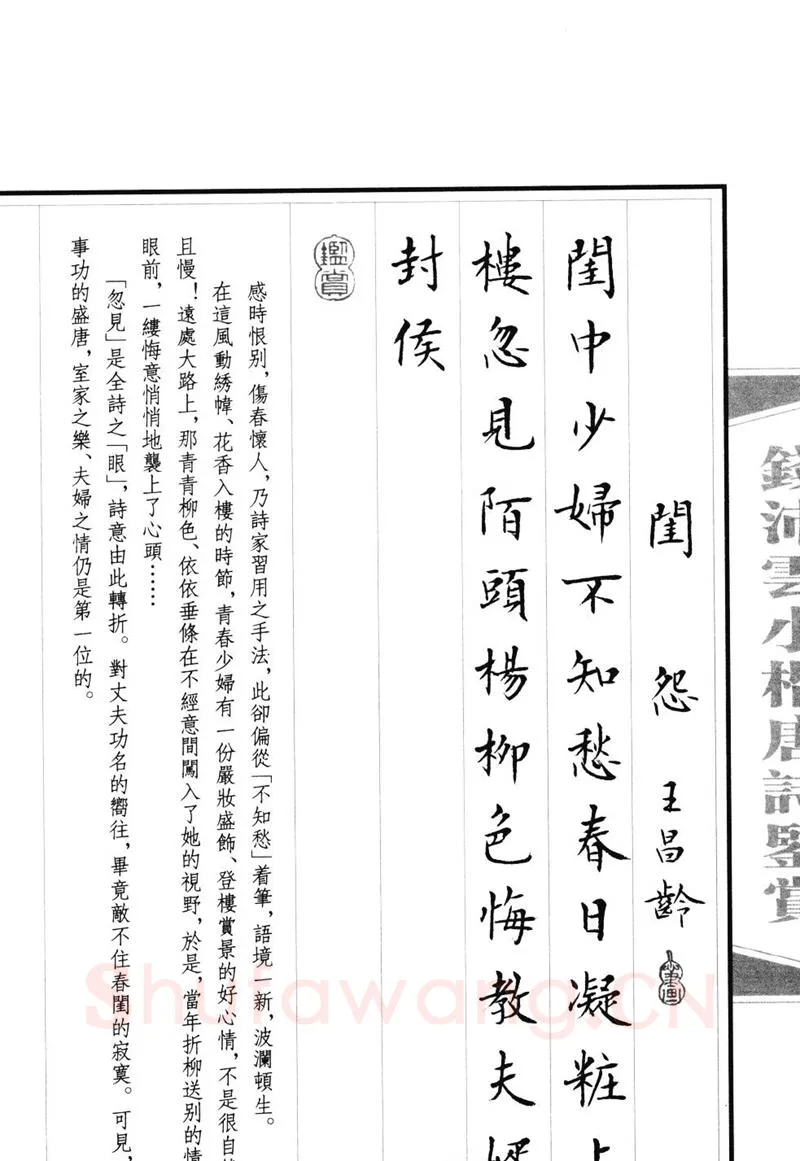 錢沛雲小楷唐詩鑒賞
閨怨 王昌齡
閨中少婦不知愁春日凝粧上
樓忽見陌頭楊柳色悔教夫
封侯
鑑賞
感時恨别，傷春懷人，乃詩家習用之手法，此卻偏從「不知愁」着筆，語境一新，波瀾頓生。
在這風動綉幃、花香入樓的時節，青春少婦有一份嚴妝盛飾、登樓賞景的好心情，不是很自
且慢！遠處大路上，那青青柳色、依依垂條在不經意間闖入了她的視野，於是，當年折柳送别的情
眼前，一縷悔意悄悄地襲上了心頭……
「忽見」是全詩之「眼」，詩意由此轉折。對丈夫功名的嚮往，畢竟敵不住春閨的寂寞。可見，
事功的盛唐，室家之樂、夫婦之情仍是第一位的。
Shufawang.CN